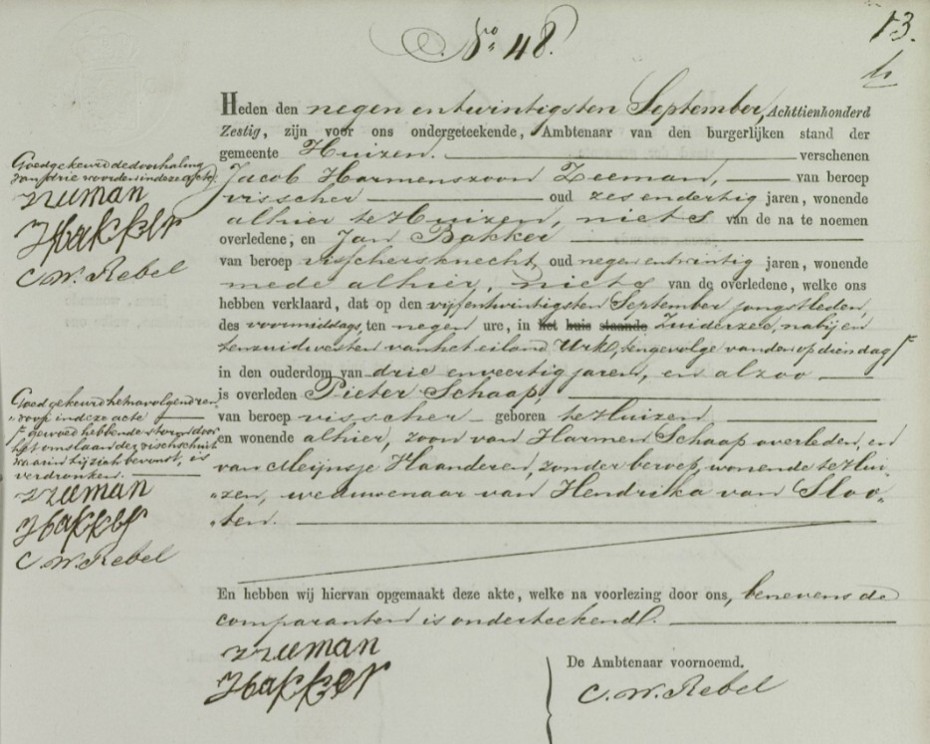 13.
No. 48.
Heden den negen en twintigsten September, Achttienhonderd
Zestig, zijn voor ons ondergeteekende, Ambtenaar van den burgerlijken stand der
gemeente Huizen. verschenen
Jacob Harmenszoon Zeeman, van beroep
visscher oud zes en dertig jaren, wonende
alhier te Huizen, niets van de na te noemen
overledene, en Jan Bakker,
van beroep visschersknecht oud negen en twintig jaren, wonende
mede alhier, niets van de overledene, welke ons
hebben verklaard, dat op den vijf en twintigsten September jongstleden,
des voormiddags, ten negen ure, in het huis staande Zuiderzee, nabij en
ten zuidwesten van het eiland Urk, ten gevolge van den op dien dag
in den ouderdom van drie en veertig jaren, en alzoo
is overleden Pieter Schaap,
van beroep visscher geboren te Huizen
en wonende alhier, zoon van Harmen Schaap overleden, en
van Meijnsje Haanderen, zonder beroep, wonende te Hui
zen, weduwenaar van Hendrika van Sloo
ten.
En hebben wij hiervan opgemaakt deze akte, welke na voorlezing door ons, benevens de
comparanten is onderteekend.
JZeeman
JBakker
De Ambtenaar voornoemd.
C. W. Rebel
Goedgekeurd de doorhaling
van drie woorden in deze acte.
JZeeman
JBakker
C. W. Rebel
Goedgekeurd het navolgend ren
voop in deze acte
gewoed hebbende storm door
het omslaan der visschschuit
waarin hij zich bevond, is
verdronken.
JZeeman
JBakker
C. W. Rebel